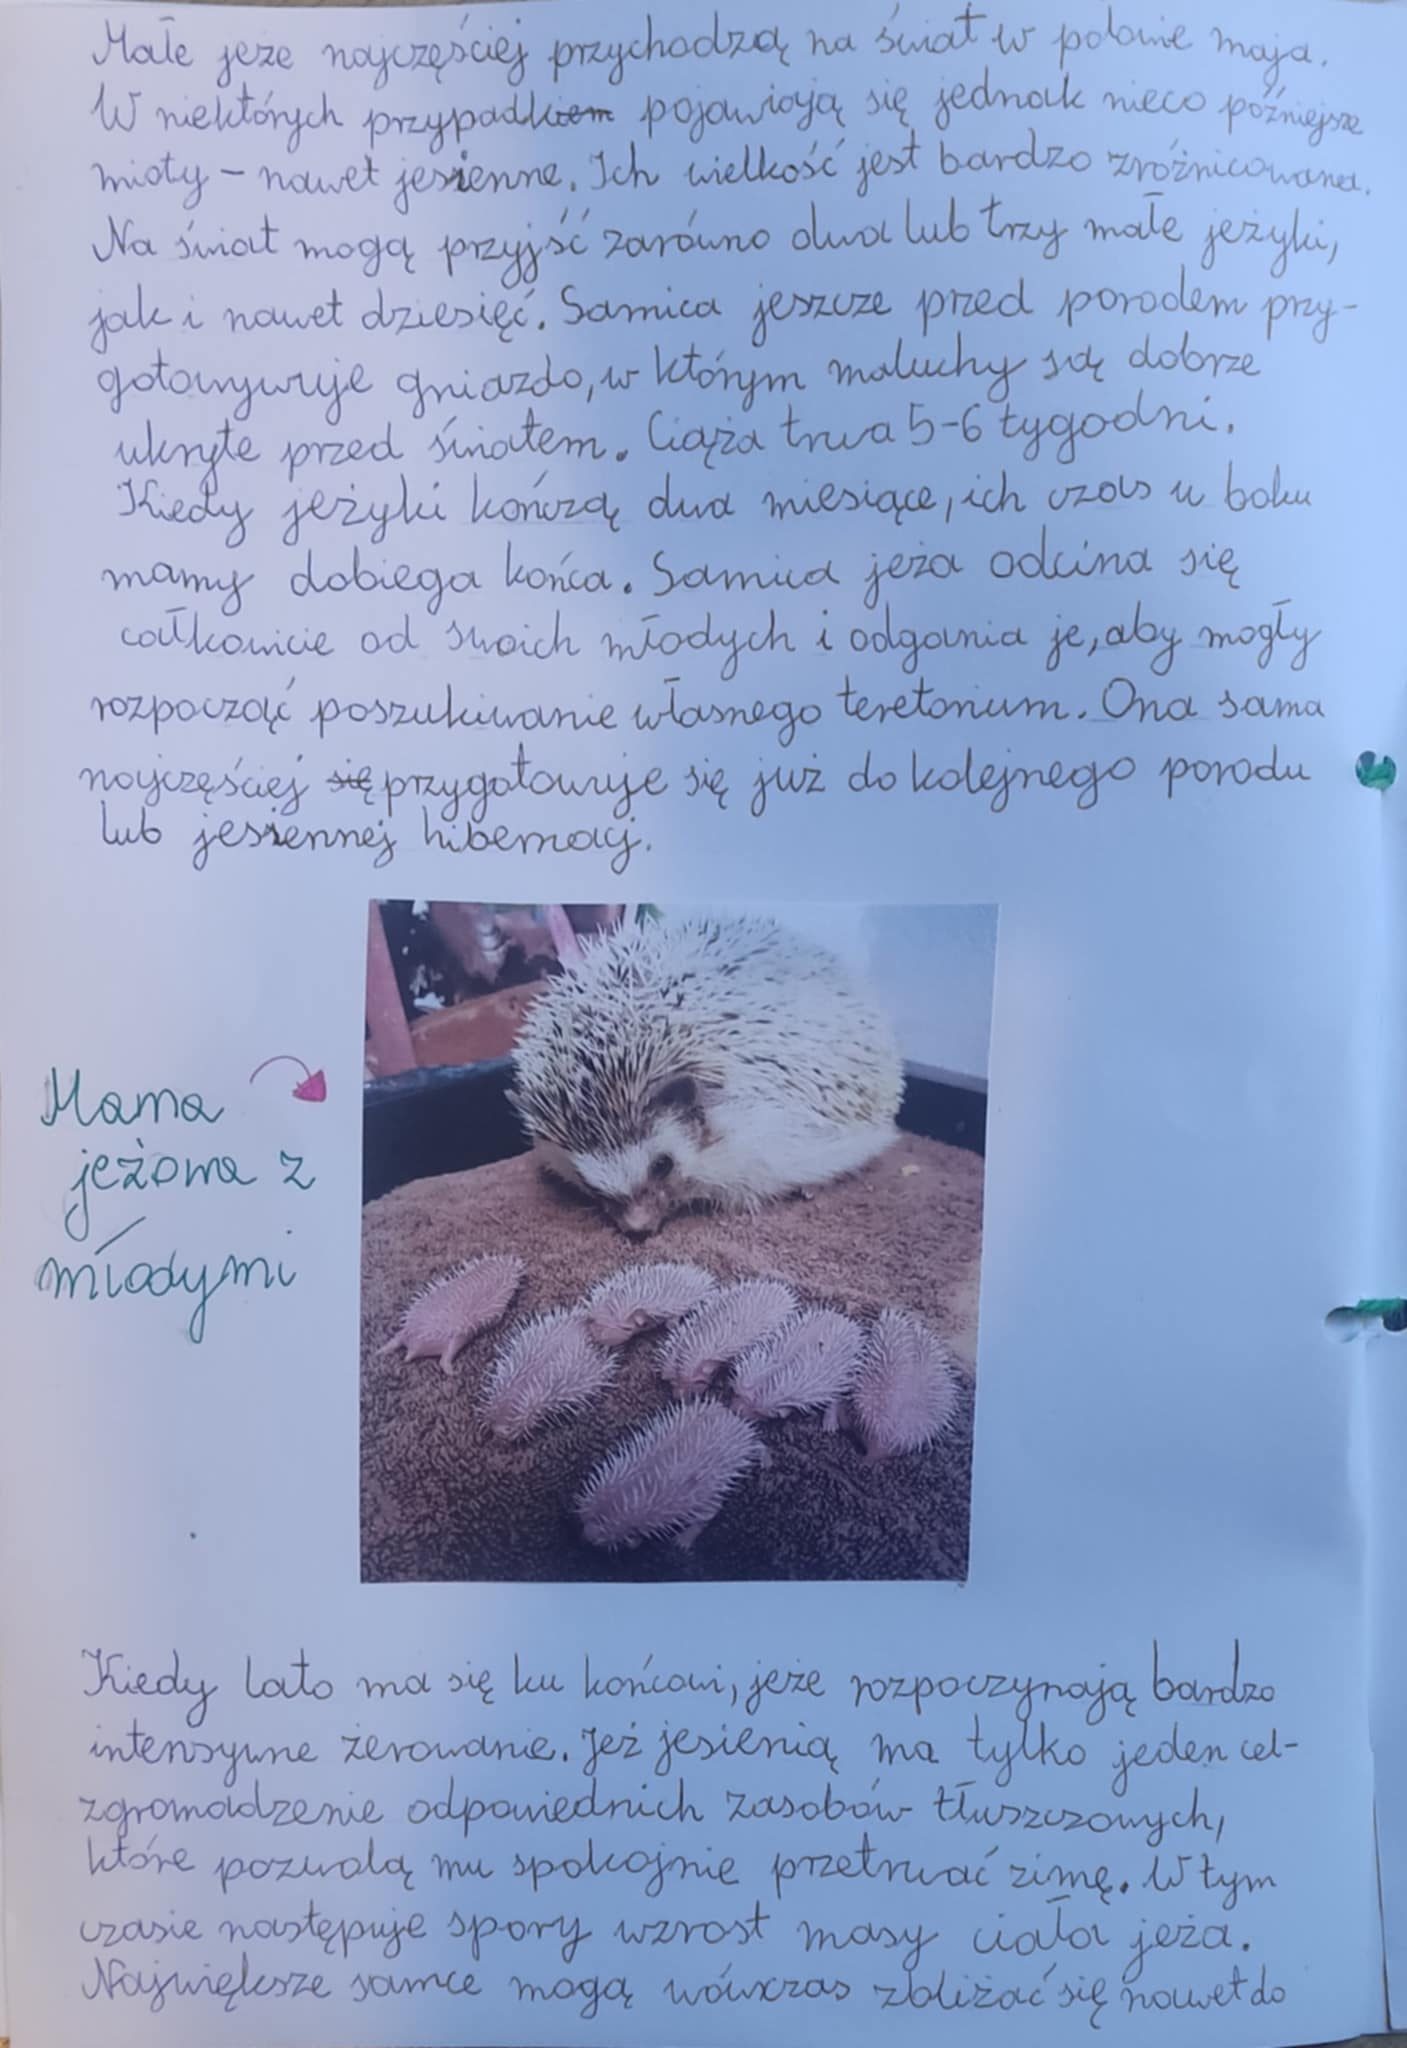 Małe jeże najczęściej przychodzą na świat w połowie maja.
W niektórych przypadkiem pojawiają się jednak nieco późniejsze
mioty – nawet jesienne. Ich wielkość jest bardzo zróżnicowana.
Na świat mogą przyjść zarówno dwa lub trzy małe jeżyki,
jak i nawet dziesięć. Samica jeszcze przed porodem przy-
gotowywuje gniazdo, w którym maluchy są dobrze
ukryte przed światem. Ciąża trwa 5-6 tygodni.
Kiedy jeżyki kończą dwa miesiące, ich czas u boku
mamy dobiega końca. Samica jeża odcina się
całkowicie od swoich młodych i odgania je, aby mogły
rozpocząć poszukiwanie własnego teretorium. Ona sama
najczęściej się przygotowuje się już do kolejnego porodu
lub jesiennej hibernacj.
Mama
jeżowa z
młodymi
Kiedy lato ma się ku końcowi, jeże rozpoczynają bardzo
intensywne żerowanie. Jeż jesienią ma tylko jeden cel-
zgromadzenie odpowiednich zasobów tłuszczowych,
które pozwolą mu spokojnie przetrwać zimę. W tym
czasie następuje spory wzrost masy ciała jeża.
Największe samce mogą wówczas zbliżać się nawet do